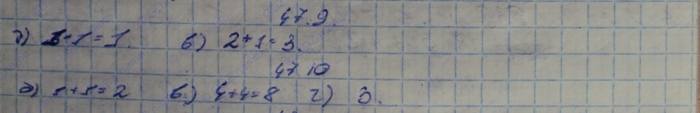 47.9.
г) 1·1=1. в) 2+1=3.
47.10
а) 1+1=2 в) 4+4=8 г) 3.